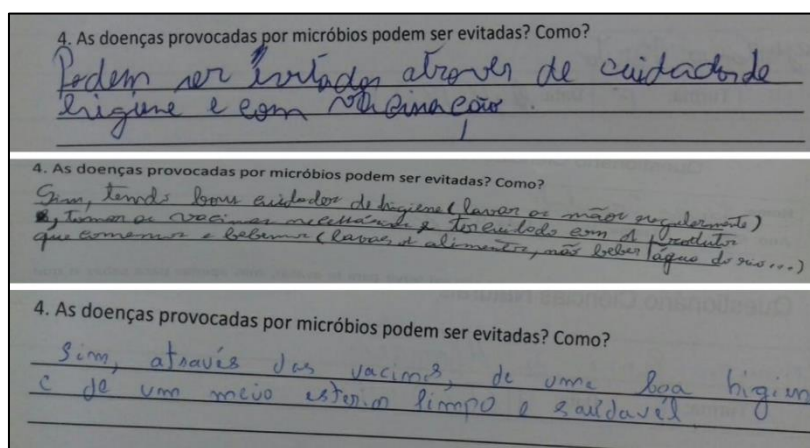 4. As doenças provocadas por micróbios podem ser evitadas? Como?
Podem ser evitadas através de cuidados de
higiene e com vacinação.
4. As doenças provocadas por micróbios podem ser evitadas? Como?
Sim, tendo bons cuidados de higiene (lavar as mãos regularmente)
, tomar as vacinas necessárias e ter cuidado com os produtos
que comemos e bebemos (lavar os alimentos, não beber água do rio...)
4. As doenças provocadas por micróbios podem ser evitadas? Como?
Sim, através das vacinas, de uma boa higien
e de um meio limpo e saúdavél